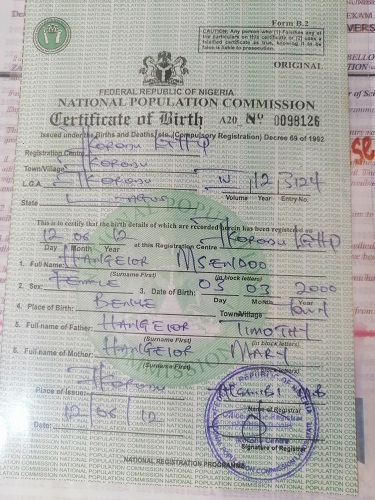 Form B.2
CAUTION: Any person who (1) Falsifies any of
the particulars on this certificate or (2) uses a
falsified certificate as true, knowing it to be
false is liable to prosecution.
ORIGINAL
FEDERAL REPUBLIC OF NIGERIA
NATIONAL POPULATION COMMISSION
Certificate of Birth A20 No 0098126
Issued under the Births and Deaths etc. (Compulsory Registration) Decree 69 of 1992
Registration Centre IKORODU
Town/Village IKORODU
L.G.A. IKORODU IV 12 3124
State Volume Year Entry No.
This is to certify that the birth details of which are recorded herein has been registered on
12 06 12 IKORODU
Day Month Year at this Registration Centre
1. Full Name: HANGEIOR MSENDOO
(Surname First) (in block letters)
2. Sex: FEMALE 3. Date of Birth: 03 03 2000
Day Month Year
4. Place of Birth: BENUE Town/Village
5. Full name of Father: HANGEIOR TIMOTHY
(Surname First) (in block letters)
6. Full name of Mother: HANGEIOR MARY
(Surname First) (in block letters)
Place of Issue: IKORODU
Name of Registrar
Date: 12/06/12
Signature of Registrar
NATIONAL REGISTRATION PROGRAMME